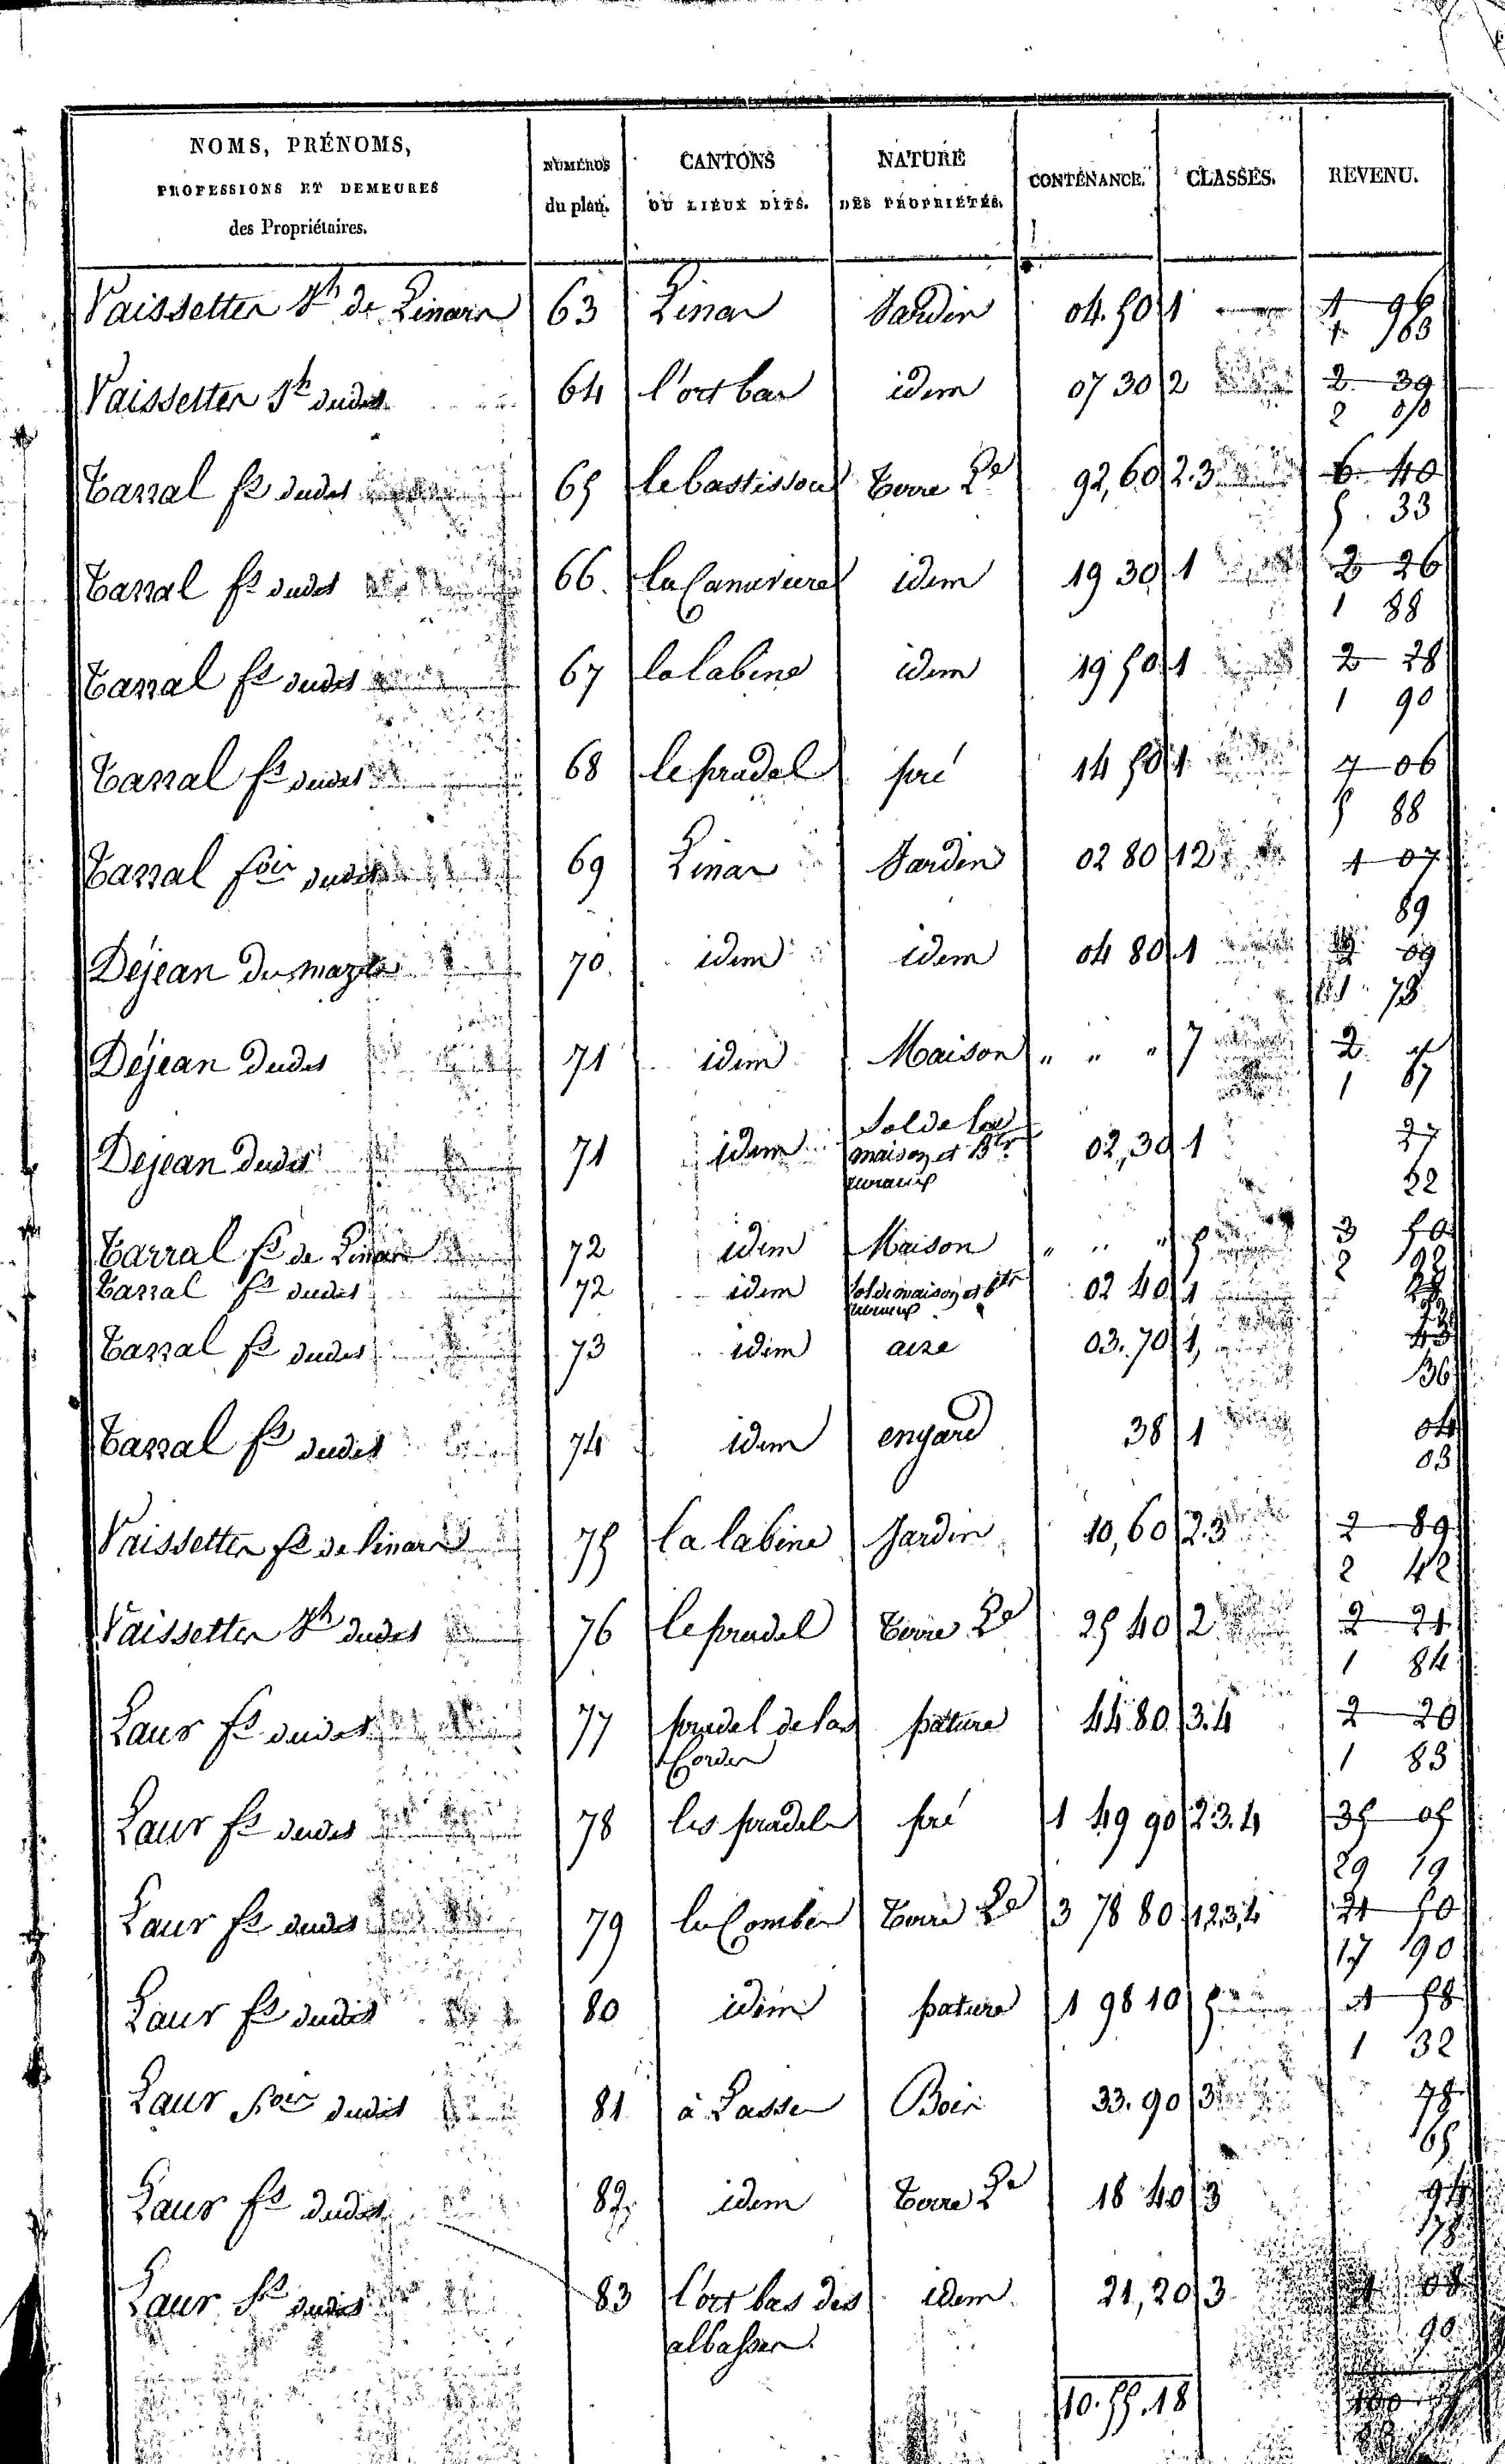 NOMS, PRÉNOMS, PROFESSIONS ET DEMEURES des Propriétaires. NUMÉROS du plan. CANTONS OU LIEUX DITS. NATURE DES PROPRIÉTÉS. CONTENANCE. CLASSES. REVENU.
Vaissettes Jh de Linars 63 Linar Jardin 04.50 1 1 96
1 63
Vaissettes Jh dudit 64 l'ort bas idem 07 30 2 2 39
2
Tarral fs dudit 65 le bastissou Terre Le 92,60 2.3 6 40
5.33
Tarral fs dudit 66 la Canaviere idem 19 30 1 2 26
1 88
Tarral fs dudit 67 la labine idem 19 50 1 2 28
1 90
Tarral fs dudit 68 le pradel pré 14 50 1 7 06
5 88
Tarral dudit 69 Linar Jardin 02 80 12 1 07
89
Déjean du mazet 70 idem idem 04 80 1 2 09
1 78
Déjean dudit 71 idem Maison " " " 7 2
1
Dejean dudit 71 idem Sol de la maison et 02,30 1 27
22
Tarral fs de Linars 72 idem Maison " " " 5 3 50
2 92
Tarral fs dudit 72 idem Sol de maison et 02 40 1
Tarral fs dudit 73 idem aire 03.70 1, 43
36
Tarral fs dudit 74 idem engard 38 1 04
03
Vaissettes fs de linars 75 la labine Jardin 10,60 2.3 2 89
2 42
Vaissettes Jh dudit 76 le pradel Terre Le 25 40 2 2 21
1 84
Laur fs dudit 77 pradel de las pature 44 80 3.4 2 20
1 83
Laur fs dudit 78 les pradels pré 1 49 90 2.3.4 35 05
29 19
Laur fs dudit 79 la Combe Terre Le 3 78 80 1,2,3,4 21 50
17 90
Laur fs dudit 80 idem pature 1 98 10 5 1 58
1 32
Laur dudit 81 à Lasse Bois 33.90 3 78
65
Laur fs dudit 82 idem Terre Le 18 40 3 94
78
Laur fs dudit 83 l'ort bas des idem 21,20 3 1 08
albasses 90
10.55.18